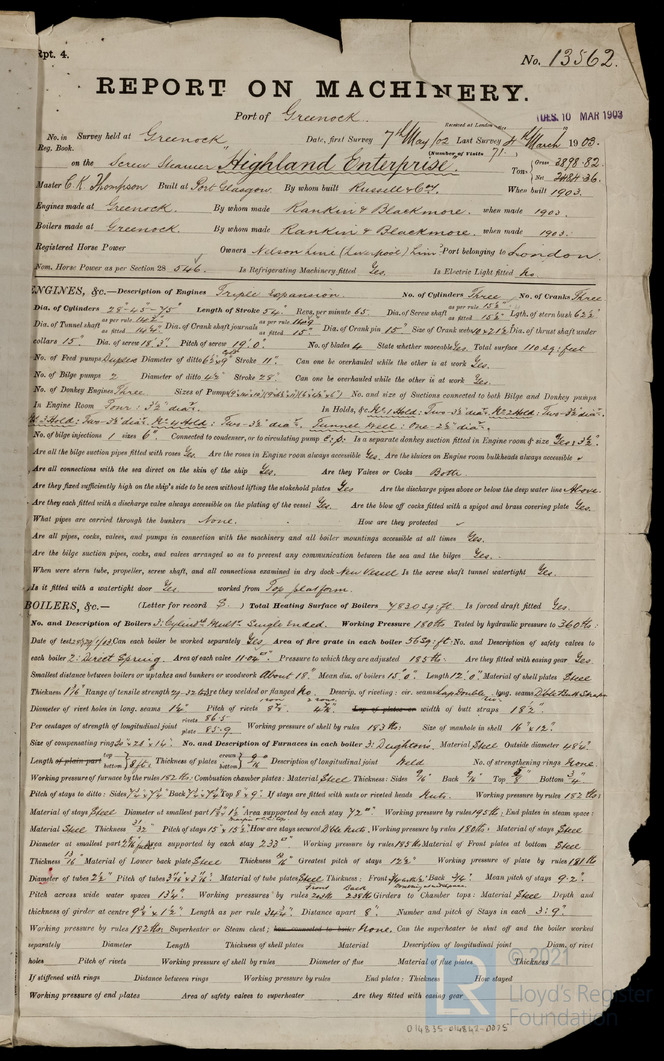 Rpt. 4.
No. 13562.
REPORT ON MACHINERY.
Port of Greenock.
Received at London office
TUES. 10 MAR 1903
No. in Survey held at Greenock Date, first Survey 7th May/02 Last Survey 4th March 1903.
Reg. Book. (Number of Visits 71
on the Screw Steamer "Highland Enterprise." Tons Gross 3898.82 Net 2484.36
Master C. K. Thompson Built at Port Glasgow By whom built Russell & Co. When built 1903.
Engines made at Greenock. By whom made Rankin & Blackmore. when made 1903.
Boilers made at Greenock. By whom made Rankin & Blackmore. when made 1903.
Registered Horse Power Owners Nelson Line (Liverpool) Lim. Port belonging to London.
Nom. Horse Power as per Section 28 546. Is Refrigerating Machinery fitted Yes. Is Electric Light fitted No.
ENGINES, &c.—Description of Engines Triple Expansion. No. of Cylinders Three No. of Cranks Three
Dia. of Cylinders 28"-45"-75" Length of Stroke 54" Revs. per minute 65. Dia. of Screw shaft as per rule as fitted 15⅝" Lgth. of stern bush 62½"
Dia. of Tunnel shaft as per rule as fitted 14¼" Dia. of Crank shaft journals as per rule as fitted 15" Dia. of Crank pin 15" Size of Crank webs Dia. of thrust shaft under
collars 15" Dia. of screw 18'.3" Pitch of screw 19'.0" No. of blades 4 State whether moveable Yes. Total surface 110 sq: feet
No. of Feed pumps Duplex Diameter of ditto Stroke 11" Can one be overhauled while the other is at work Yes.
No. of Bilge pumps 2 Diameter of ditto 4½" Stroke 28" Can one be overhauled while the other is at work Yes.
No. of Donkey Engines Three Sizes of Pumps No. and size of Suctions connected to both Bilge and Donkey pumps
In Engine Room Four: 3½" diar. In Holds, &c. No 1 Hold: Two-3½" diar. No 2 Hold: Two-3½" diar.
No 3 Hold: Two-3½" diar. No 4 Hold: Two-3½" diar. Tunnel Well: One-2½" diar.
No. of bilge injections 1 sizes 6" Connected to condenser, or to circulating pump C.p. Is a separate donkey suction fitted in Engine room & size Yes: 3½"
Are all the bilge suction pipes fitted with roses Yes. Are the roses in Engine room always accessible Yes. Are the sluices on Engine room bulkheads always accessible
Are all connections with the sea direct on the skin of the ship Yes. Are they Valves or Cocks Both.
Are they fixed sufficiently high on the ship's side to be seen without lifting the stokehold plates Yes Are the discharge pipes above or below the deep water line Above.
Are they each fitted with a discharge valve always accessible on the plating of the vessel Yes. Are the blow off cocks fitted with a spigot and brass covering plate Yes.
What pipes are carried through the bunkers None. How are they protected
Are all pipes, cocks, valves, and pumps in connection with the machinery and all boiler mountings accessible at all times Yes.
Are the bilge suction pipes, cocks, and valves arranged so as to prevent any communication between the sea and the bilges Yes.
When were stern tube, propeller, screw shaft, and all connections examined in dry dock New Vessel Is the screw shaft tunnel watertight Yes.
Is it fitted with a watertight door Yes worked from Top platform.
BOILERS, &c.— (Letter for record S.) Total Heating Surface of Boilers 7830 sq: ft Is forced draft fitted Yes.
No. and Description of Boilers 3: Cylindl Multr Single Ended. Working Pressure 180 lbs Tested by hydraulic pressure to 360 lbs:
Date of test Can each boiler be worked separately Yes. Area of fire grate in each boiler 56 sq: ft: No. and Description of safety valves to
each boiler 2: Direct Spring. Area of each valve 11.04" Pressure to which they are adjusted 185 lbs: Are they fitted with easing gear Yes.
Smallest distance between boilers or uptakes and bunkers or woodwork about 18" Mean dia. of boilers 15'.0" Length 12'.0" Material of shell plates Steel
Thickness Range of tensile strength Are they welded or flanged No. Descrip. of riveting: cir. seams Lap Double long. seams Dble Butt Straps
Diameter of rivet holes in long. seams Pitch of rivets Lap of plates or width of butt straps 18½"
Per centages of strength of longitudinal joint rivets 86.5 plate 85.9 Working pressure of shell by rules 183 lbs: Size of manhole in shell 16" x 12"
Size of compensating ring No. and Description of Furnaces in each boiler 3: Deighton's Material Steel Outside diameter 48¼"
Length of plain part top bottom Thickness of plates crown bottom 9/16 Description of longitudinal joint Weld No. of strengthening rings None.
Working pressure of furnace by the rules 182 lbs: Combustion chamber plates: Material Steel Thickness: Sides 9/16" Back 9/16" Top Bottom ¾"
Pitch of stays to ditto: Sides Back Top 8" x 9" If stays are fitted with nuts or riveted heads Nuts. Working pressure by rules 182 lbs:
Material of stays Steel Diameter at smallest part Area supported by each stay 72" Working pressure by rules 195 lbs: End plates in steam space:
Material Steel Thickness Pitch of stays How are stays secured Dble Nuts. Working pressure by rules 180 lbs: Material of stays Steel
Diameter at smallest part Area supported by each stay 233" Working pressure by rules 185 lbs Material of Front plates at bottom Steel
Thickness Material of Lower back plate Steel Thickness Greatest pitch of stays 12½" Working pressure of plate by rules 181 lbs
Diameter of tubes 2½" Pitch of tubes Material of tube plates Steel Thickness: Front Back ¾" Mean pitch of stays 9.2"
Pitch across wide water spaces 13¼" Working pressures by rules Front Back 238 lbs Girders to Chamber tops: Material Steel Depth and
thickness of girder at centre Length as per rule 34¼" Distance apart 8" Number and pitch of Stays in each 3: 9"
Working pressure by rules 182 lbs: Superheater or Steam chest; how connected to boiler None. Can the superheater be shut off and the boiler worked
separately Diameter Length Thickness of shell plates Material Description of longitudinal joint Diam. of rivet
holes Pitch of rivets Working pressure of shell by rules Diameter of flue Material of flue plates Thickness
If stiffened with rings Distance between rings Working pressure by rules End plates: Thickness How stayed
Working pressure of end plates Area of safety valves to superheater Are they fitted with easing gear
© 2021
LR
Lloyd's Register
Foundation
014835-014842-0075